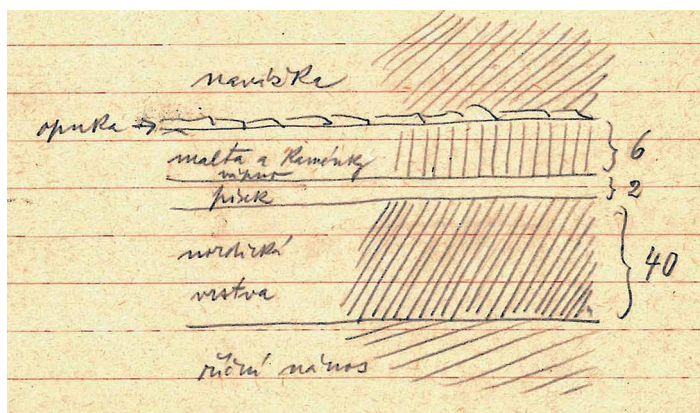 navážka
opuka →
malta a kaménky
vápno
písek
nordická
vrstva
říční nános
6
2
40